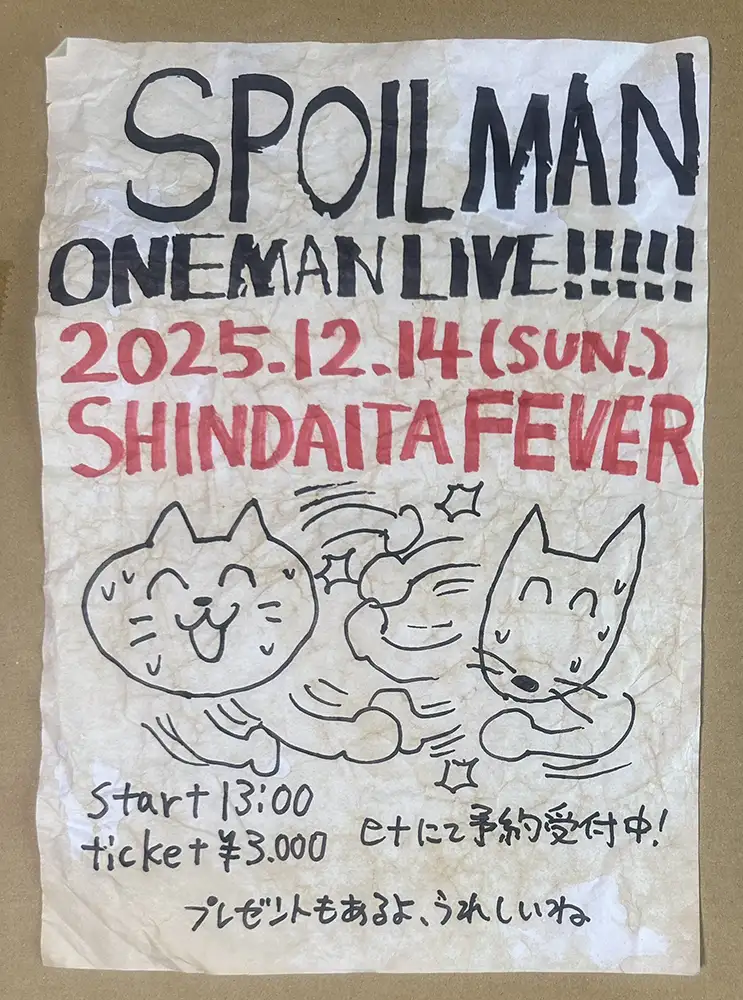 SPOILMAN
ONEMAN LIVE!!!!!
2025.12.14(SUN.)
SHINDAITA FEVER
start 13:00
ticket ¥3.000
e+にて予約受付中!
プレゼントもあるよ、うれしいね